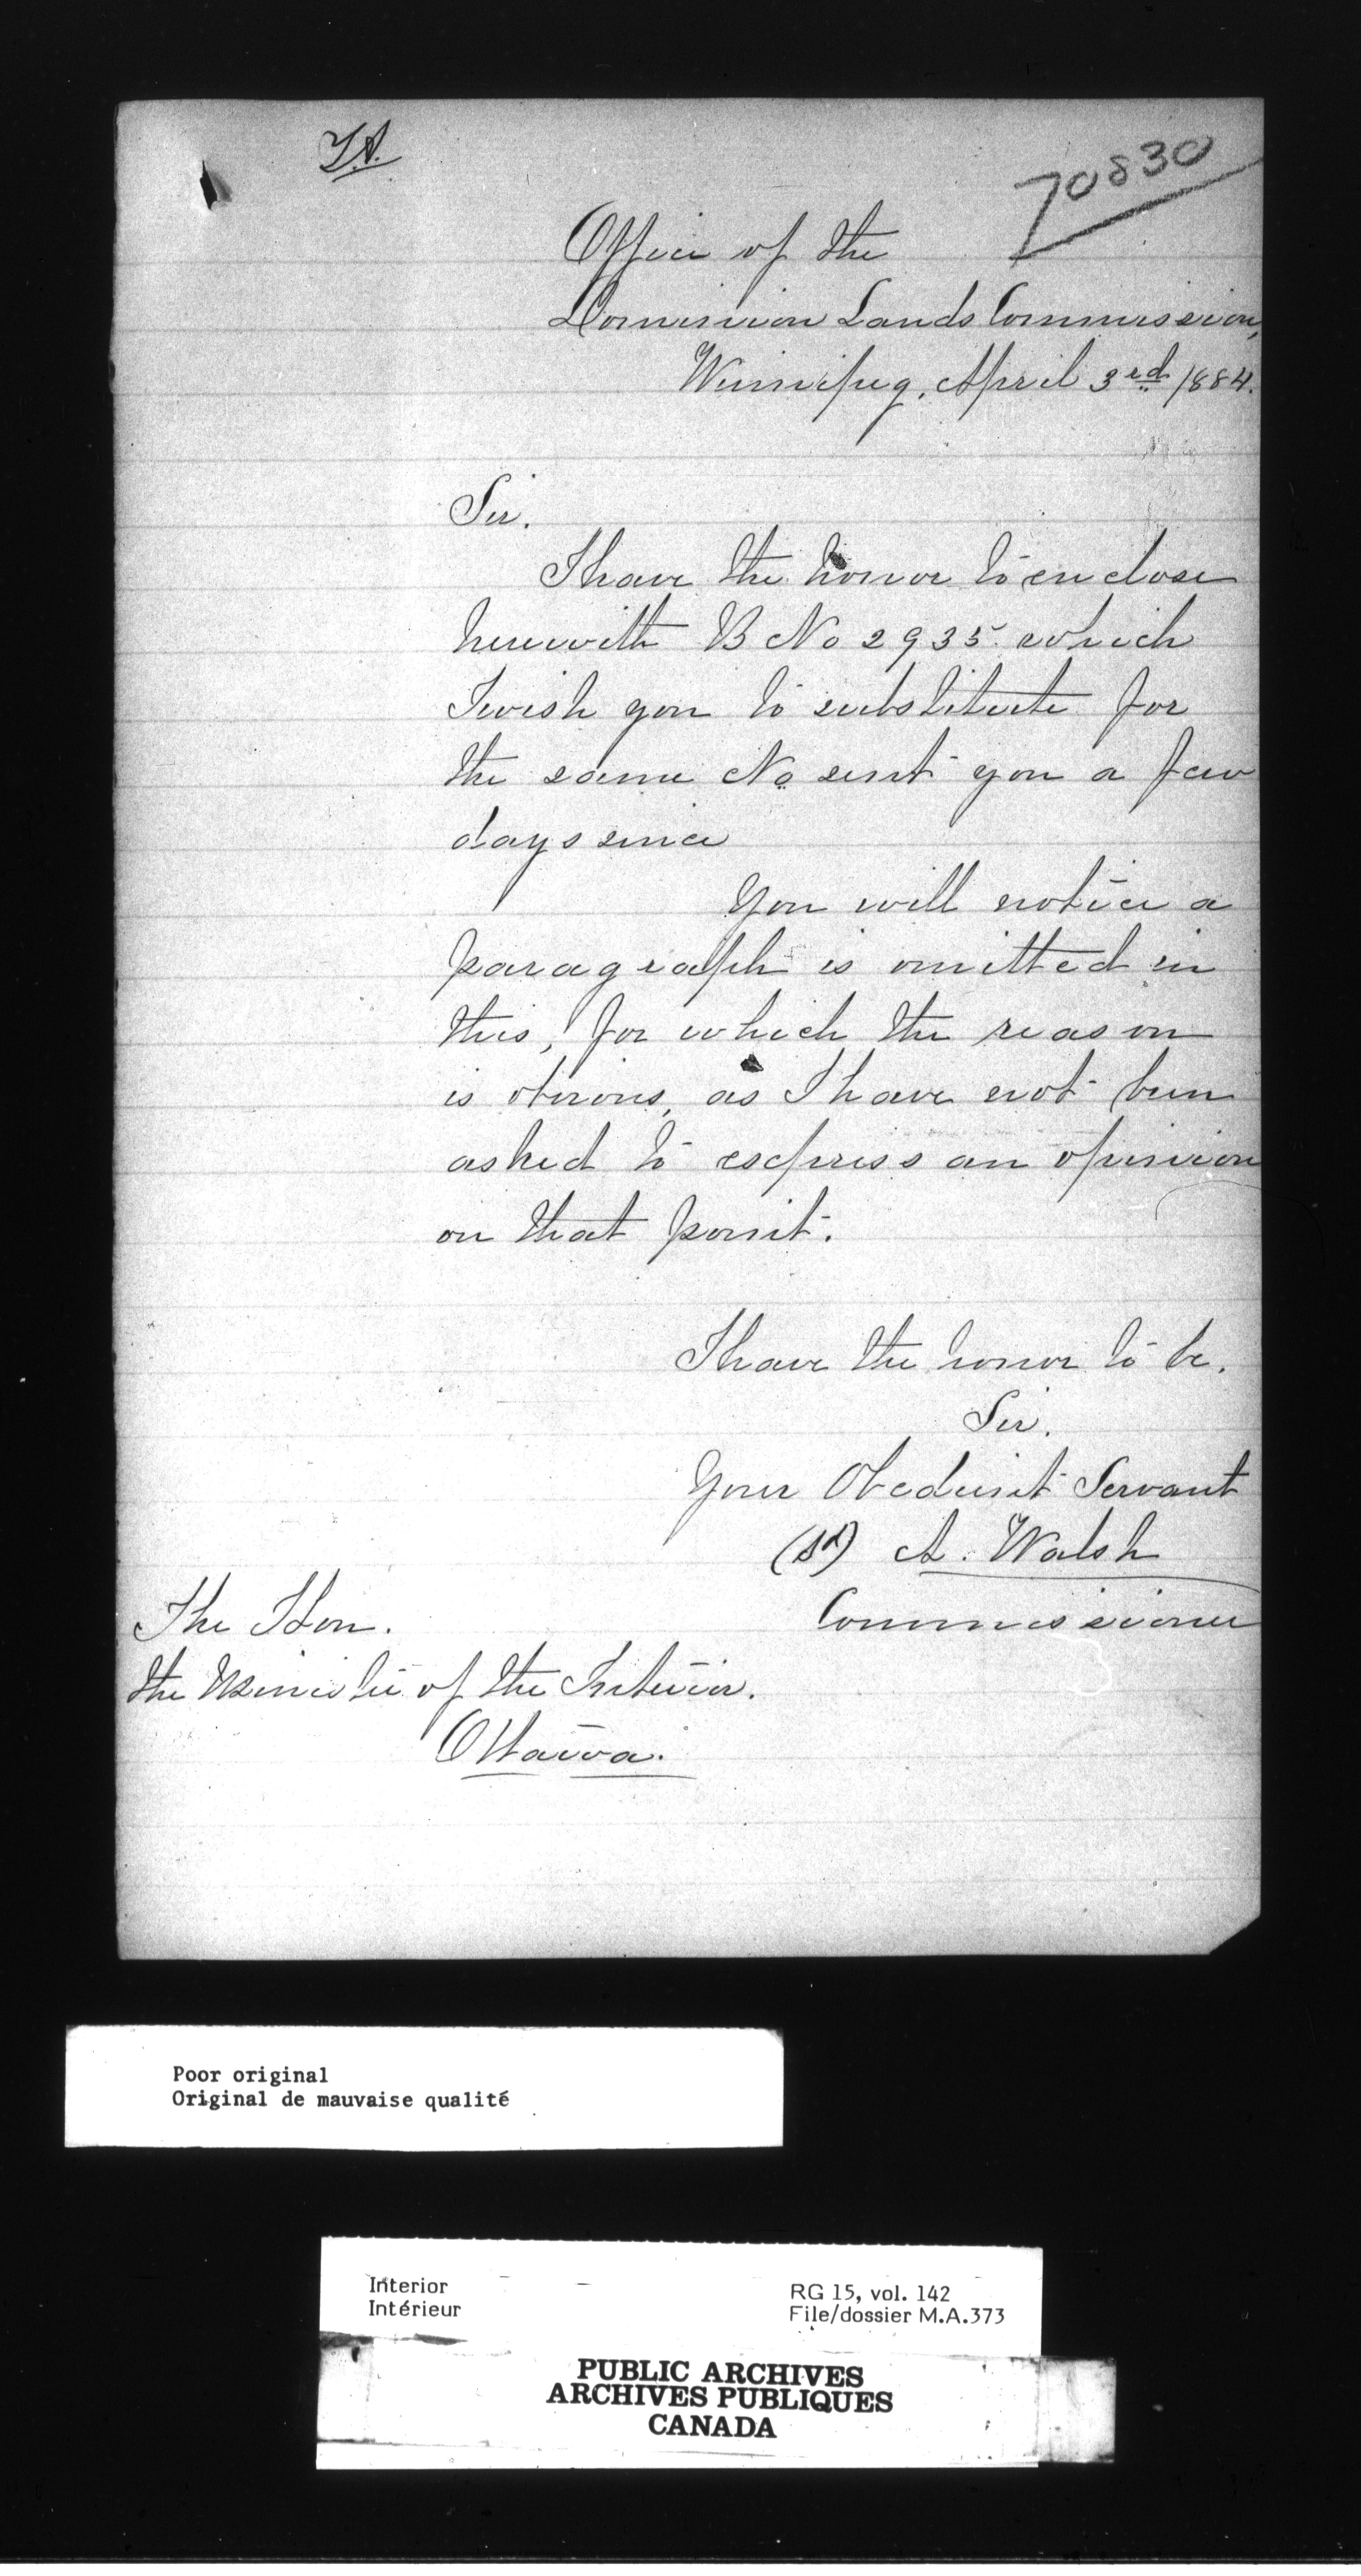 70830
Office of the
Dominion Lands Commission,
Winnipeg, April 3rd 1884.
Sir.
I have the honor to enclose
herewith B No 2935 which
I wish you to substitute for
the same No sent you a few
days since
You will notice a
paragraph is omitted in
this, for which the reason
is obvious, as I have not been
asked to express an opinion
on that point.
I have the honor to be.
Sir.
Your Obedient Servant
(Sd) A. Walsh
Commissioner
The Hon.
the Minister of the Interior.
Ottawa.
Poor original
Original de mauvaise qualité
Interior
Intérieur
RG 15, vol. 142
File/dossier M.A.373
PUBLIC ARCHIVES
ARCHIVES PUBLIQUES
CANADA